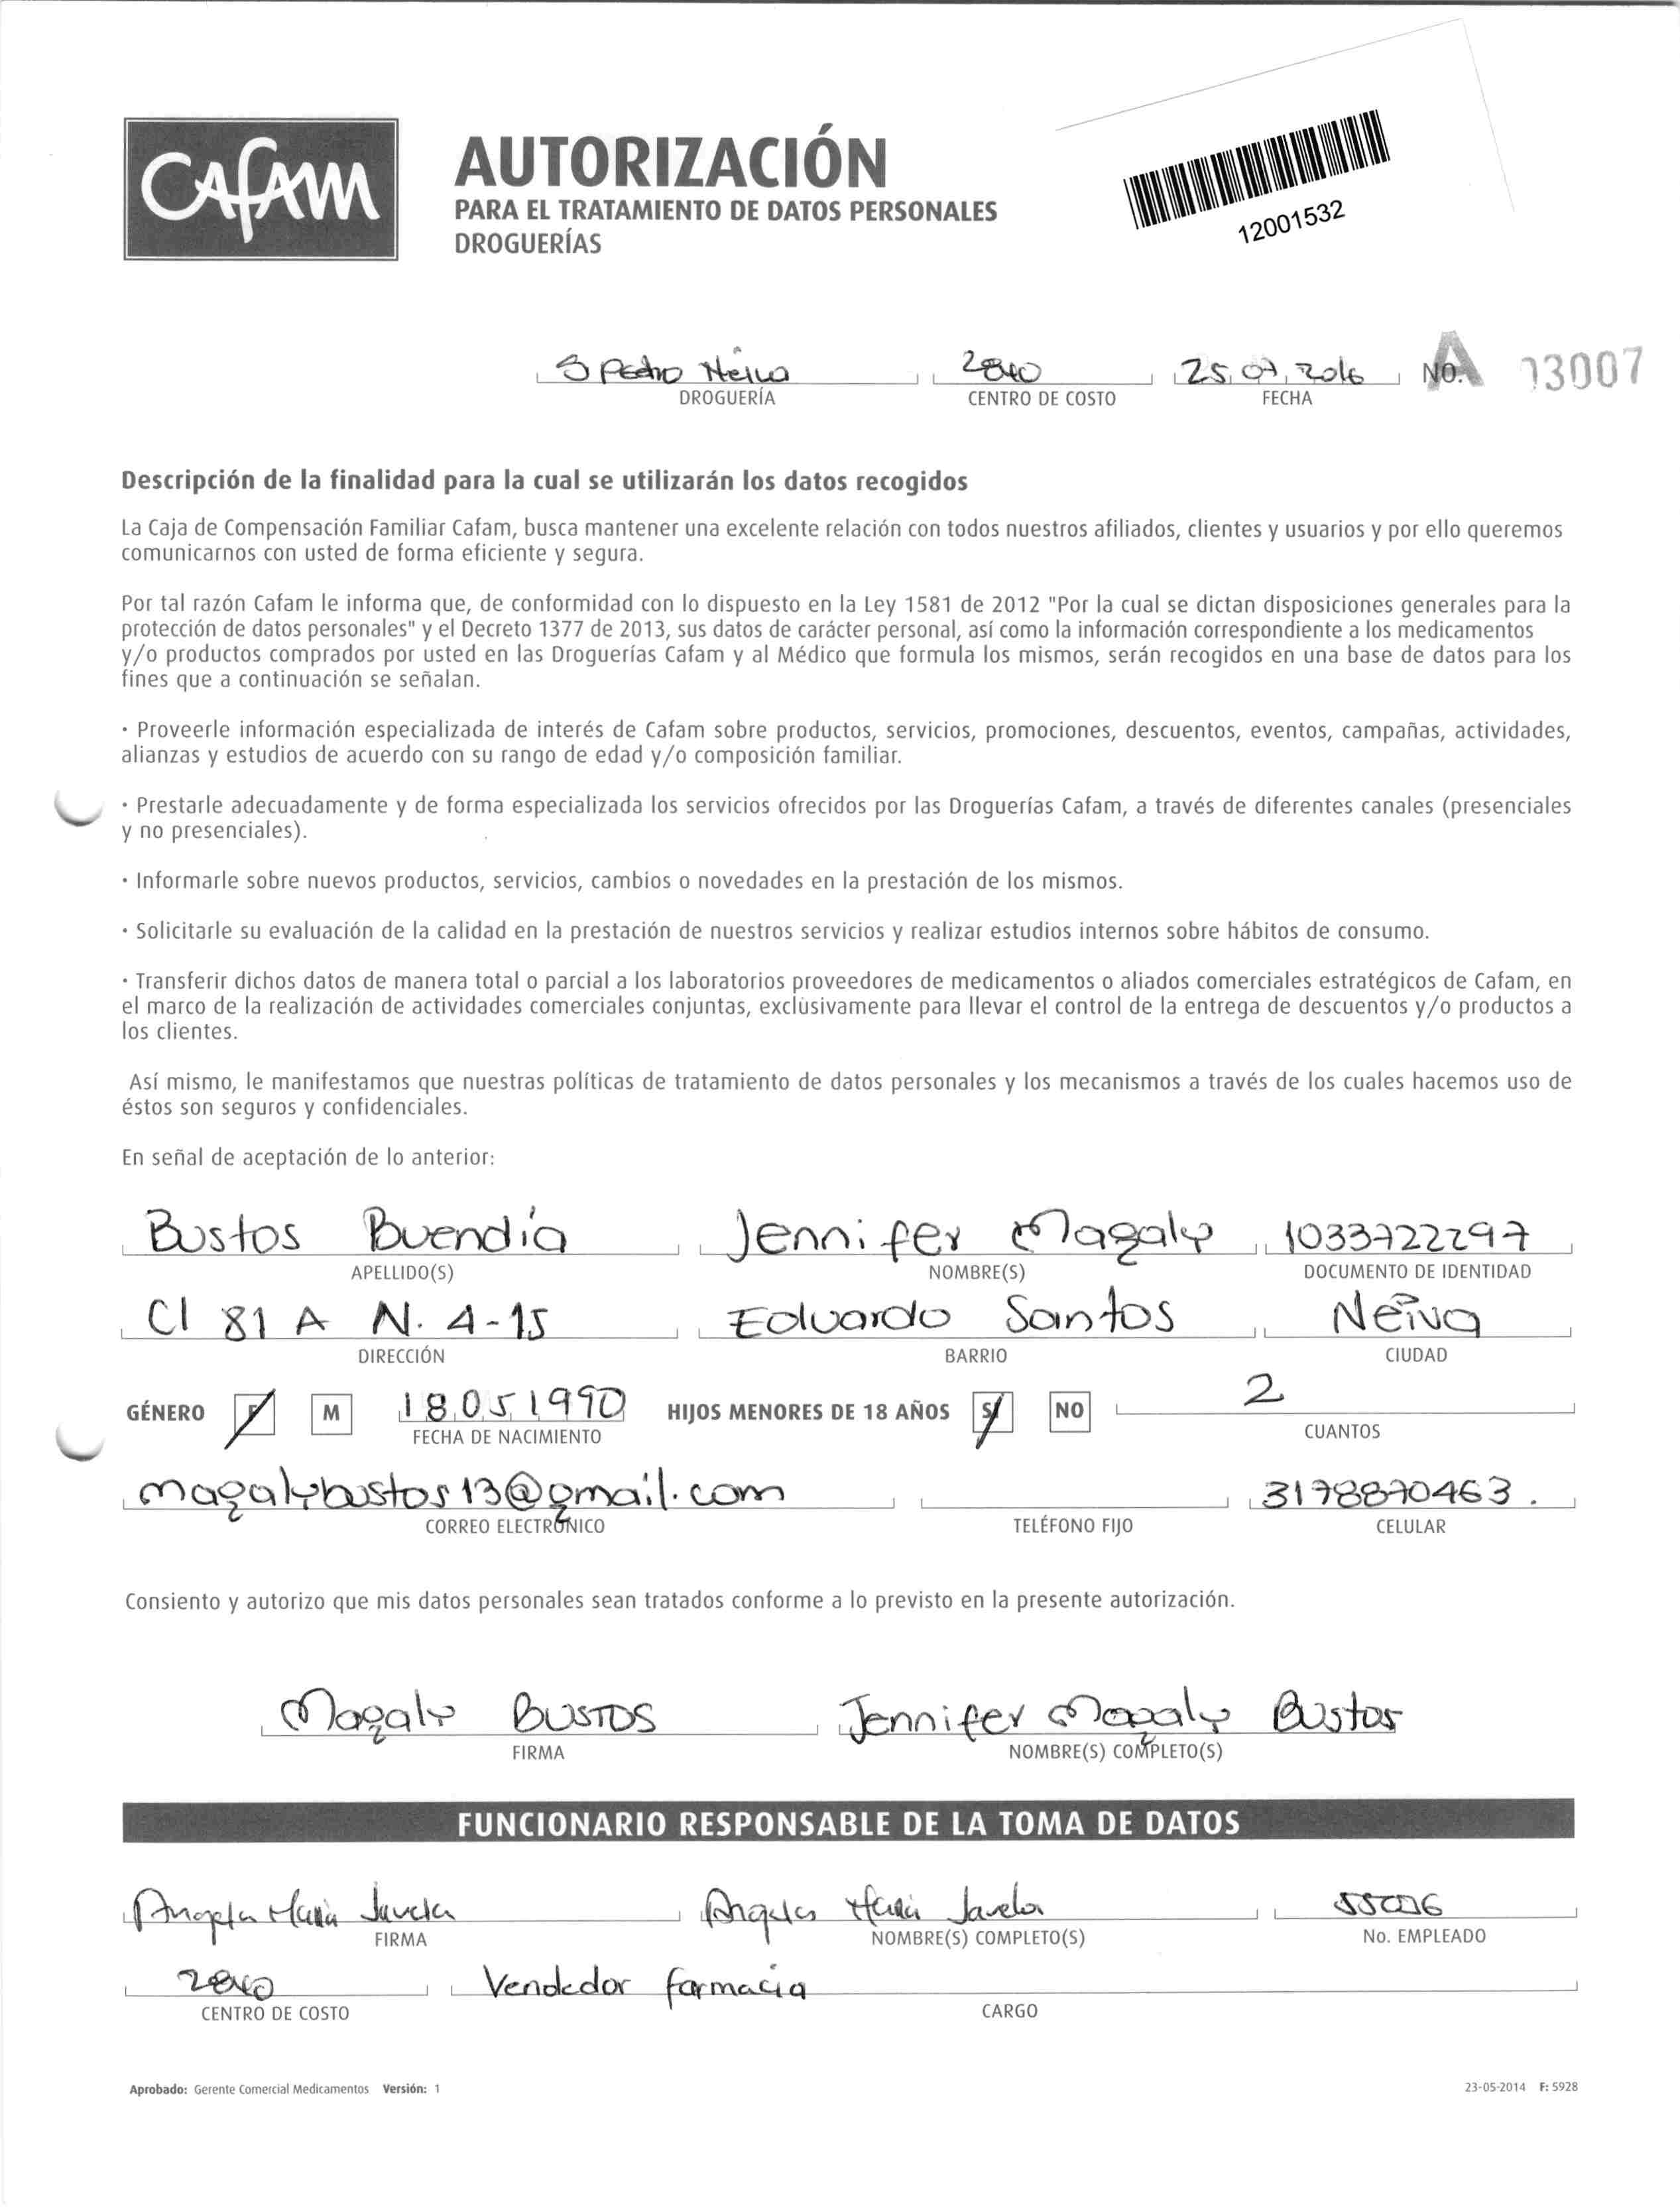 CAFAM
AUTORIZACIÓN
PARA EL TRATAMIENTO DE DATOS PERSONALES
DROGUERÍAS
12001532
S Pedro Neiva 2840 25 07 2016 No. A 13007
DROGUERÍA CENTRO DE COSTO FECHA
Descripción de la finalidad para la cual se utilizarán los datos recogidos
La Caja de Compensación Familiar Cafam, busca mantener una excelente relación con todos nuestros afiliados, clientes y usuarios y por ello queremos
comunicarnos con usted de forma eficiente y segura.
Por tal razón Cafam le informa que, de conformidad con lo dispuesto en la Ley 1581 de 2012 "Por la cual se dictan disposiciones generales para la
protección de datos personales" y el Decreto 1377 de 2013, sus datos de carácter personal, así como la información correspondiente a los medicamentos
y/o productos comprados por usted en las Droguerías Cafam y al Médico que formula los mismos, serán recogidos en una base de datos para los
fines que a continuación se señalan.
· Proveerle información especializada de interés de Cafam sobre productos, servicios, promociones, descuentos, eventos, campañas, actividades,
alianzas y estudios de acuerdo con su rango de edad y/o composición familiar.
· Prestarle adecuadamente y de forma especializada los servicios ofrecidos por las Droguerías Cafam, a través de diferentes canales (presenciales
y no presenciales).
· Informarle sobre nuevos productos, servicios, cambios o novedades en la prestación de los mismos.
· Solicitarle su evaluación de la calidad en la prestación de nuestros servicios y realizar estudios internos sobre hábitos de consumo.
· Transferir dichos datos de manera total o parcial a los laboratorios proveedores de medicamentos o aliados comerciales estratégicos de Cafam, en
el marco de la realización de actividades comerciales conjuntas, exclusivamente para llevar el control de la entrega de descuentos y/o productos a
los clientes.
Así mismo, le manifestamos que nuestras políticas de tratamiento de datos personales y los mecanismos a través de los cuales hacemos uso de
éstos son seguros y confidenciales.
En señal de aceptación de lo anterior:
Bustos Buendía Jennifer Magaly 1033722297
APELLIDO(S) NOMBRE(S) DOCUMENTO DE IDENTIDAD
Cl 81 A N. 4-15 Eduardo Santos Neiva
DIRECCIÓN BARRIO CIUDAD
GÉNERO F M 18 05 1990 HIJOS MENORES DE 18 AÑOS SI NO 2
FECHA DE NACIMIENTO CUANTOS
magalybustos13@gmail.com 3178870463.
CORREO ELECTRÓNICO TELÉFONO FIJO CELULAR
Consiento y autorizo que mis datos personales sean tratados conforme a lo previsto en la presente autorización.
Magaly Bustos Jennifer Magaly Bustos
FIRMA NOMBRE(S) COMPLETO(S)
FUNCIONARIO RESPONSABLE DE LA TOMA DE DATOS
Angela Maria Javela Angela Maria Javela 55026
FIRMA NOMBRE(S) COMPLETO(S) No. EMPLEADO
2840 Vendedor farmacia
CENTRO DE COSTO CARGO
Aprobado: Gerente Comercial Medicamentos Versión: 1 23-05-2014 F: 5928